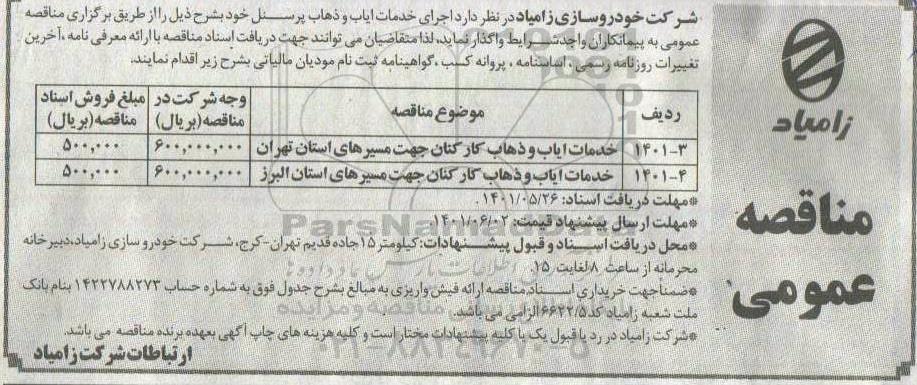 شرکت خودروسازی زامیاد در نظر دارد اجرای خدمات ایاب و ذهاب پرسنل خود بشرح ذیل را از طریق برگزاری مناقصه
عمومی به پیمانکاران واجد شرایط واگذار نماید، لذا متقاضیان می توانند جهت دریافت اسناد مناقصه با ارائه معرفی نامه ، آخرین
تغییرات روزنامه رسمی ، اساسنامه ، پروانه کسب ، گواهینامه ثبت نام مودیان مالیاتی بشرح زیر اقدام نمایند.
زامیاد
مناقصه
عمومی
ردیف موضوع مناقصه وجه شرکت در مناقصه (بریال) مبلغ فروش اسناد مناقصه (بریال)
۱۴۰۱-۳ خدمات ایاب و ذهاب کارکنان جهت مسیرهای استان تهران ۶۰۰,۰۰۰,۰۰۰ ۵۰۰,۰۰۰
۱۴۰۱-۴ خدمات ایاب و ذهاب کارکنان جهت مسیرهای استان البرز ۶۰۰,۰۰۰,۰۰۰ ۵۰۰,۰۰۰
*مهلت دریافت اسناد: ۱۴۰۱/۰۵/۲۶.
*مهلت ارسال پیشنهاد قیمت: ۱۴۰۱/۰۶/۰۲
*محل دریافت اسناد و قبول پیشنهادات: کیلومتر ۱۵ جاده قدیم تهران-کرج، شرکت خودروسازی زامیاد، دبیرخانه
محرمانه از ساعت ۸ لغایت ۱۵.
*ضمنا جهت خریداری اسناد مناقصه ارائه فیش واریزی به مبالغ بشرح جدول فوق به شماره حساب ۱۴۲۲۷۸۸۲۷۳ بنام بانک
ملت شعبه زامیاد کد ۶۶۲۲/۵ الزامی می باشد.
*شرکت زامیاد در رد یا قبول یک یا کلیه پیشنهادات مختار است و کلیه هزینه های چاپ آگهی بعهده برنده مناقصه می باشد.
ارتباطات شرکت زامیاد